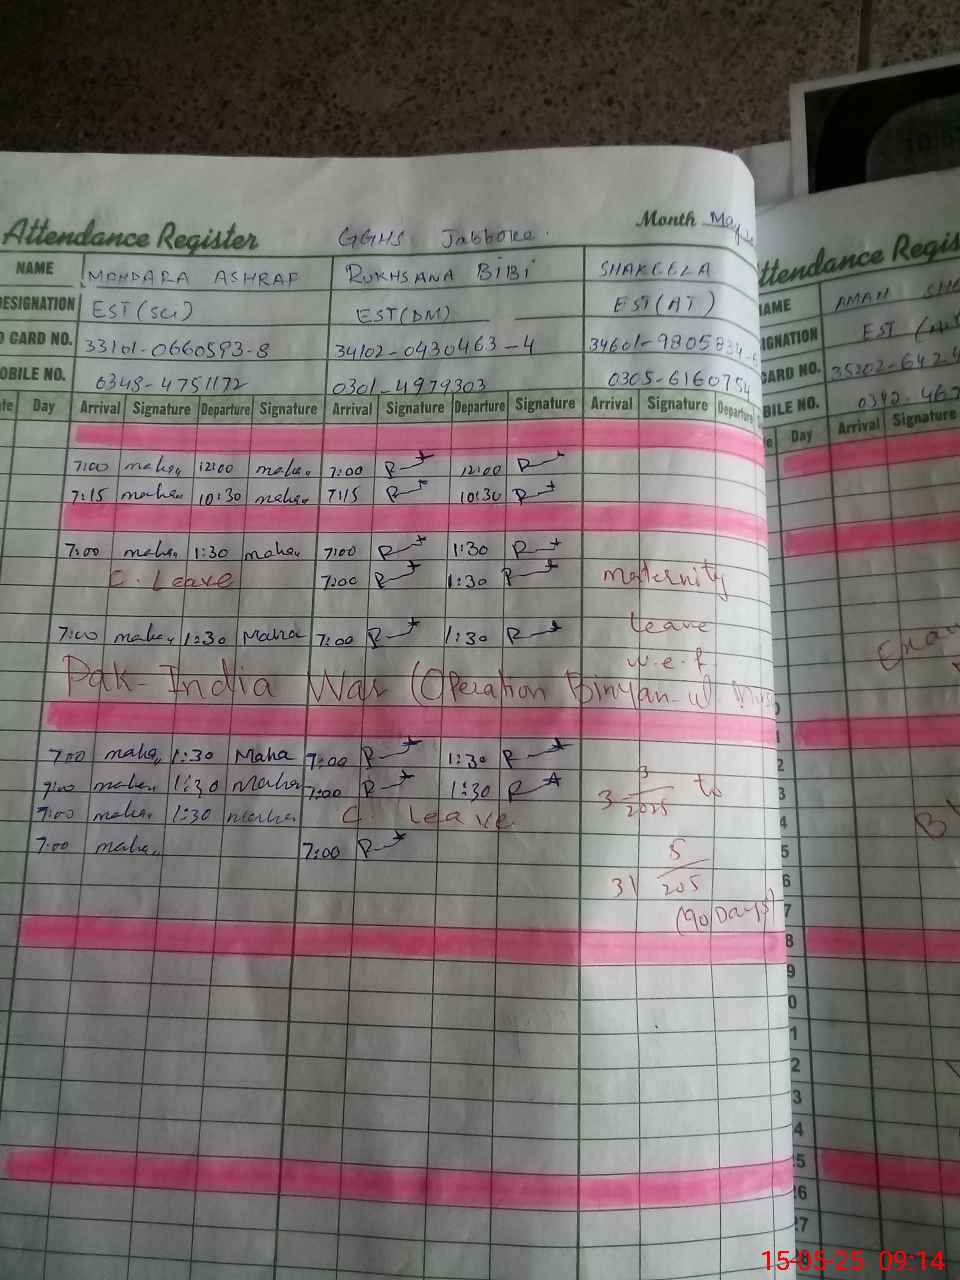 10:5
Attendance Register GGHS Jabboke. Month May
NAME MAHDARA ASHRAF RUKHSANA BiBi SHAKEELA
DESIGNATION EST(Sci) EST(DM) EST(AT)
D CARD NO. 33101-0660593-8 34102-0430463-4 34601-9805834-
OBILE NO. 0348-4751172 0301-4979303 0305-6160754
te Day Arrival Signature Departure Signature Arrival Signature Departure Signature Arrival Signature Departure
7:00 maha 12:00 maha 7:00 R 12:00 R
7:15 maha 10:30 maha 7:15 R 10:30 R
7:00 maha 1:30 maha 7:00 R 1:30 R
C. Leave 7:00 R 1:30 R maternity
7:00 maha 1:30 Maha 7:00 R 1:30 R leave
w.e.f
Pak-India War (Operation Binyan-ul
7:00 maha 1:30 Maha 7:00 R 1:30 R
7:00 maha 1:30 Maha 7:00 R 1:30 R 3 3/2025 to
7:00 maha 1:30 Maha C. Leave.
7:00 maha 7:00 R
31 5/205
(90 Days)
ttendance Regis
AME AMAN
IGNATION EST
CARD NO. 35202-6424
BILE NO. 0342-467
e Day Arrival Signature
2
3
4
5
6
7
8
9
0
1
2
3
4
5
6
7
15-05-25 09:14